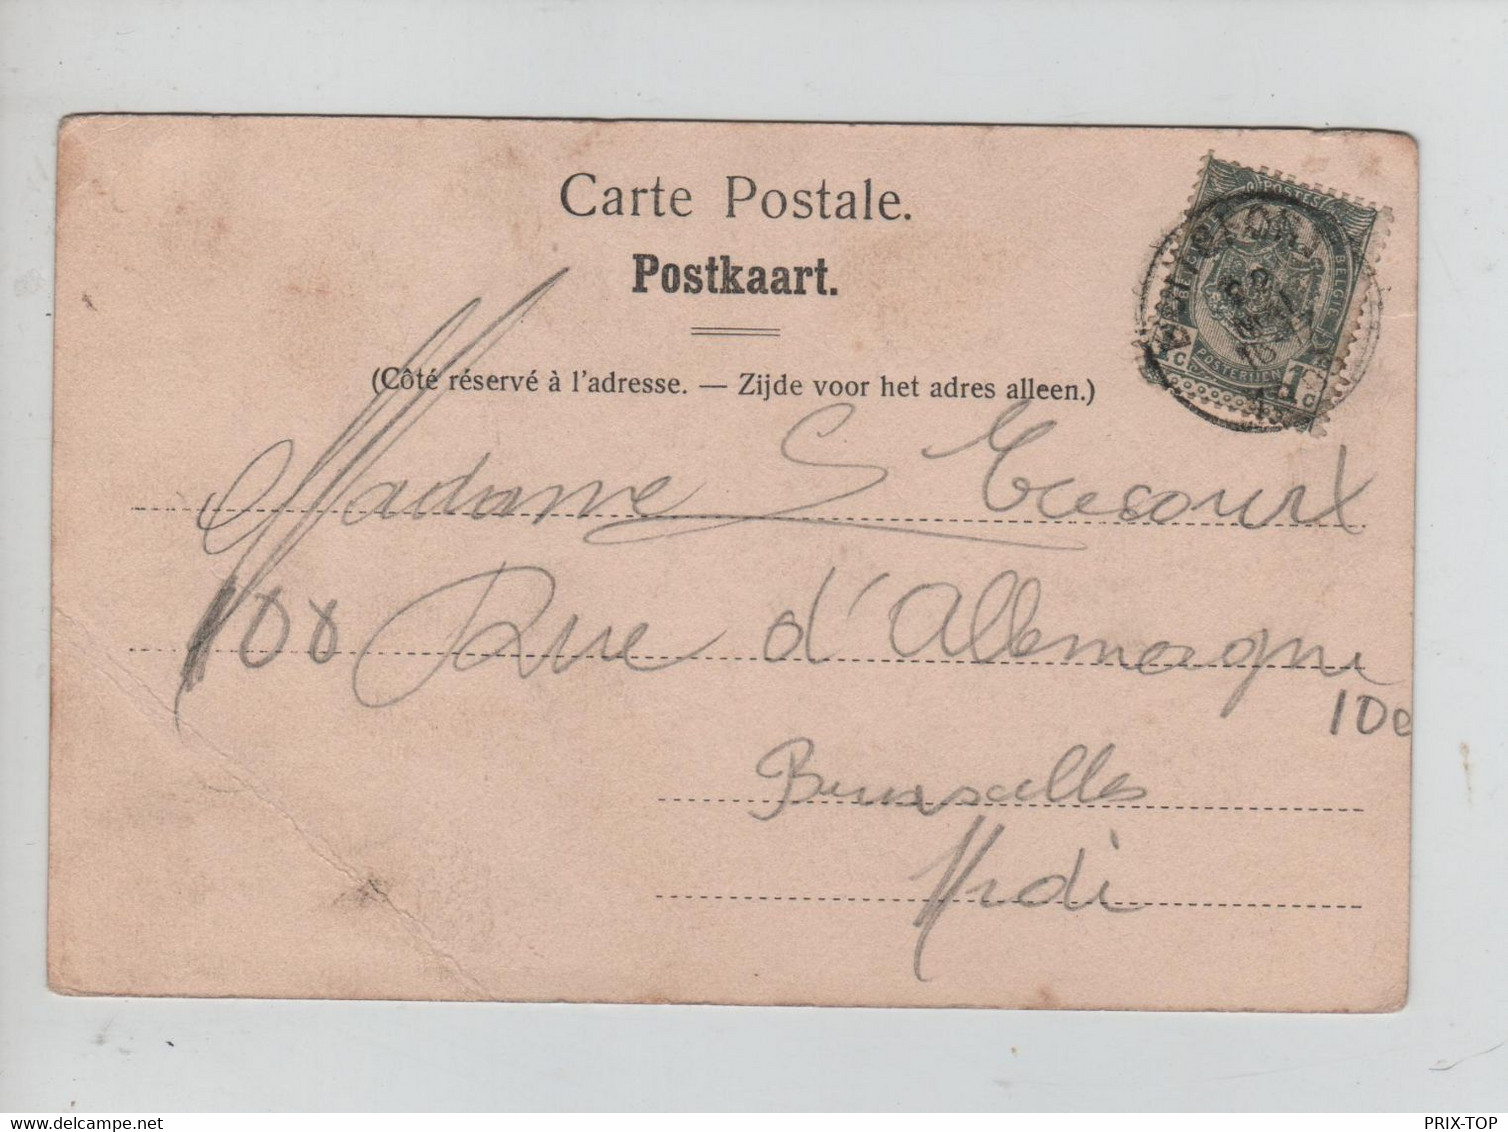 Carte Postale.
Postkaart.
(Côté réservé à l'adresse. — Zijde voor het adres alleen.)
POSTES
BELGIE
POSTERIJEN
1c
1c
Madame S
100 Rue d'Allemagne
10e
Bruxelles
Midi
delcampe.net
PRIX-TOP